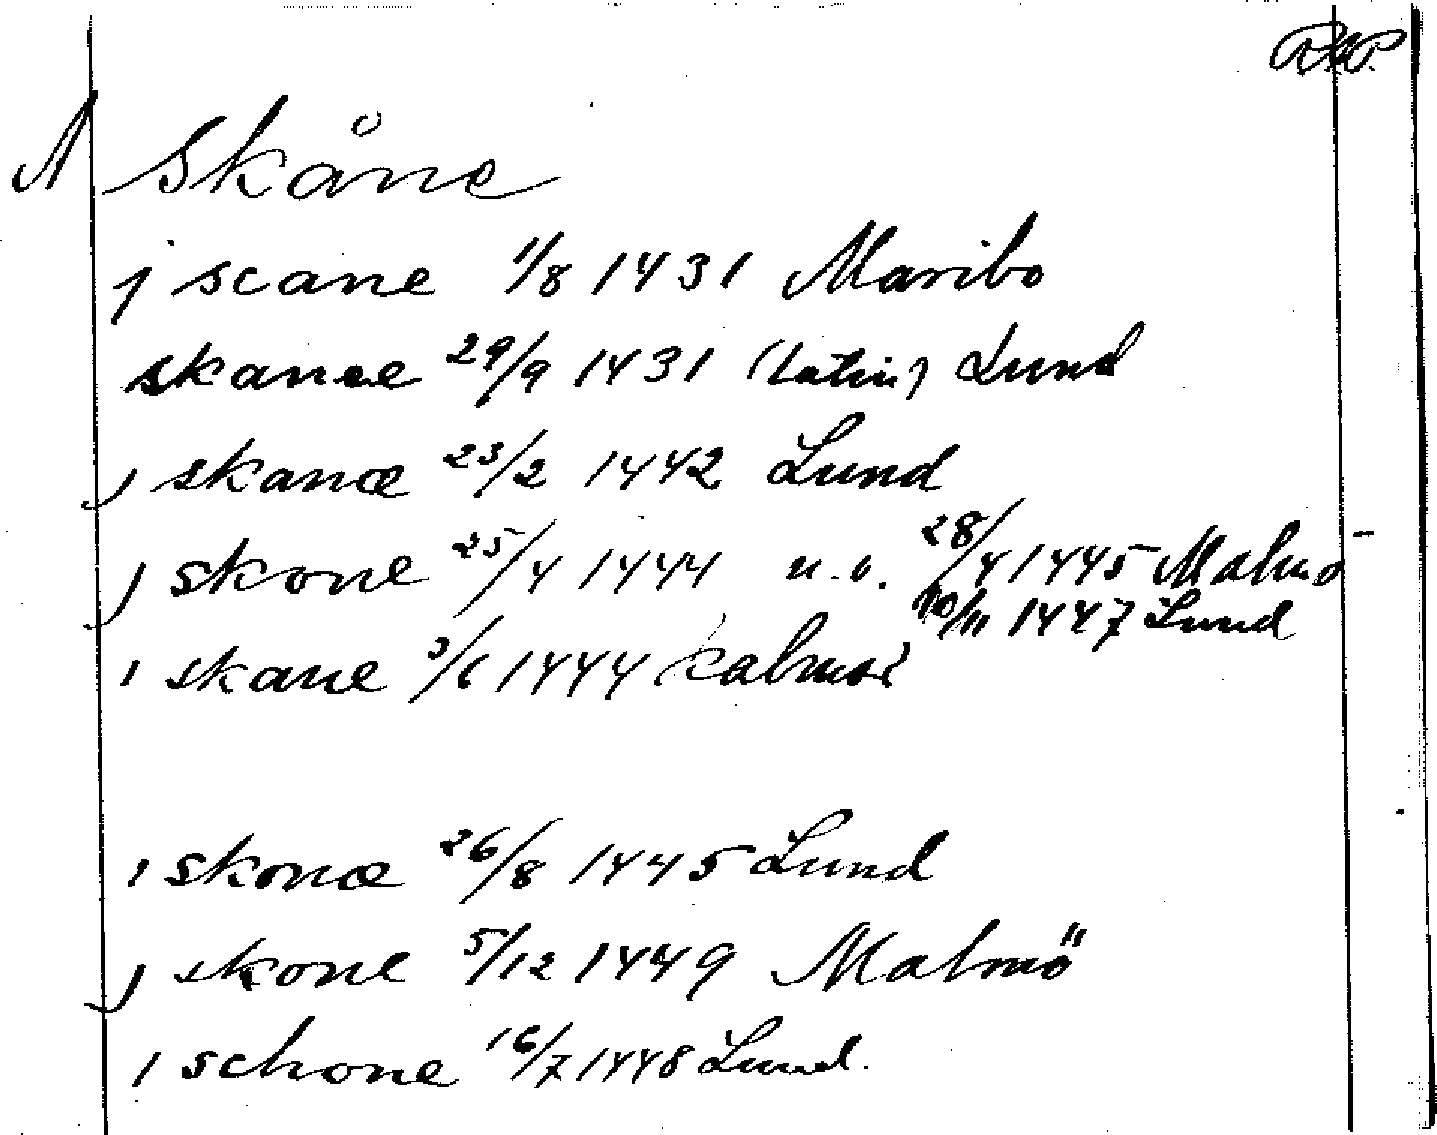 RAP.
N Skåne
j scane 1/8 1431 Maribo
skanee 29/9 1431 (latin) Lund
j skanæ 23/2 1442 Lund
j skone 25/4 1444 u.o. 28/4 1445 Malmö
10/11 1447 Lund
i skane 3/6 1444 Kalmar
i skonæ 26/8 1445 Lund
j skone 5/12 1449 Malmö
i schone 16/7 1448 Lund.